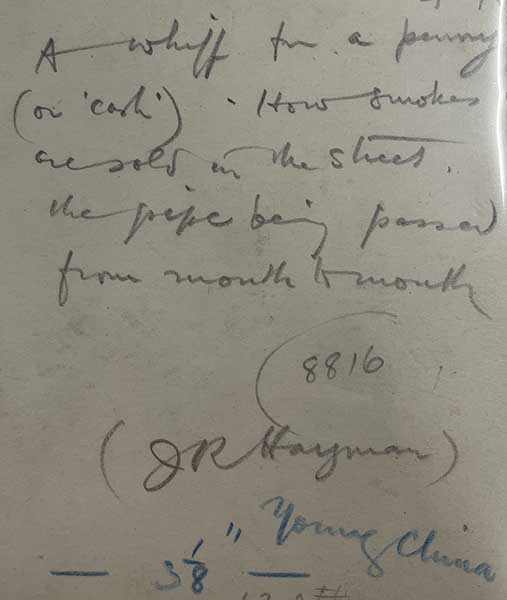 A whiff for a penny
(or 'cash'). How smokes
are sold in the street.
the pipe being passed
from mouth to mouth
8816
(JR Hayman)
" Young China
— 3 1/8 —